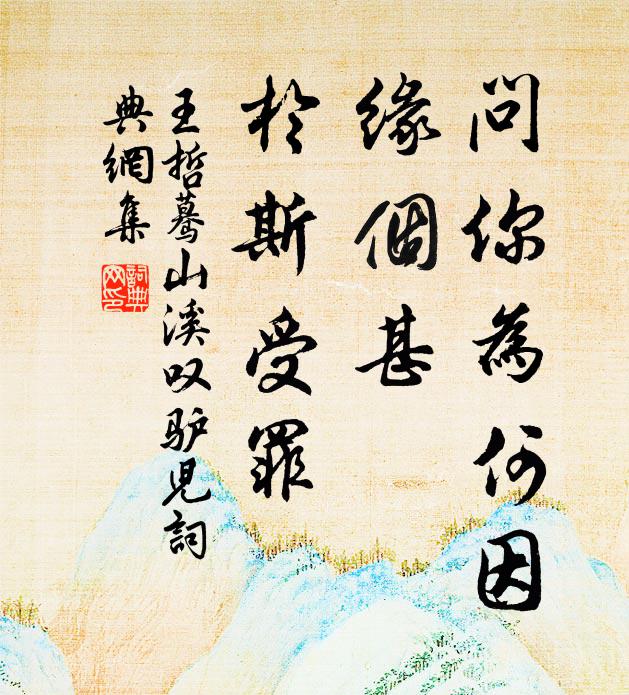 問你為何因
緣個甚
於斯受罪
王哲蓦山溪叹驴児詞
典網集
詞典
网印